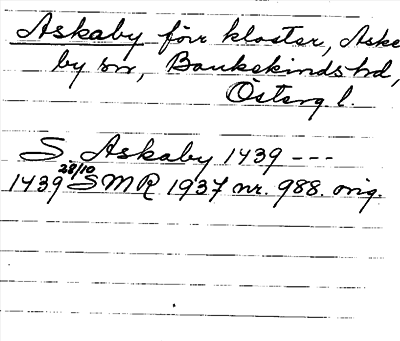 Askaby förr kloster, Aske
by sn, Bankekinds hd,
Österg l.
S. Askaby 1439 ---
1439 28/10 SMR 1937 nr. 988. orig.